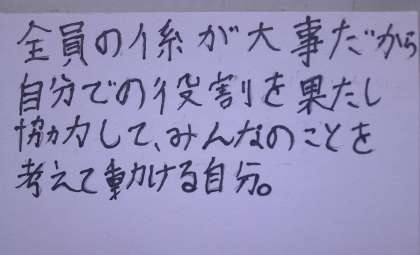 全員の係が大事だから
自分での役割を果たし
協力して、みんなのことを
考えて動ける自分。